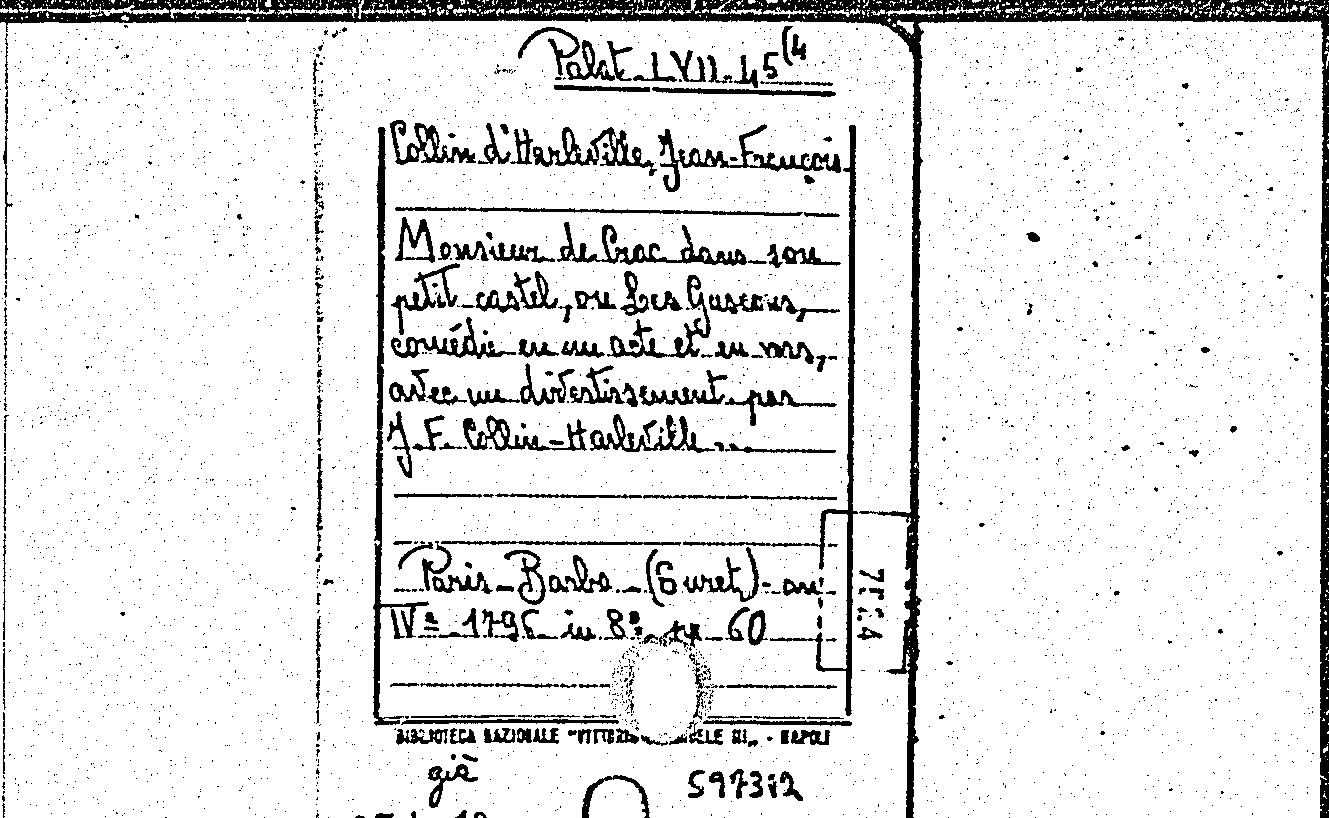 Palat. LVII. 45(4
Collin d'Harleville, Jean-François
Monsieur de Crac dans son
petit castel, ou Les Gascons,
comédie en un acte et en vers,
avec un divertissement par
J. F. Collin-Harleville ...
Paris Barba (Guret) an
IVº 1796 in 8º pp 60
BIBLIOTECA NAZIONALE "VITTORIO EMANUELE III" - NAPOLI
già
597312